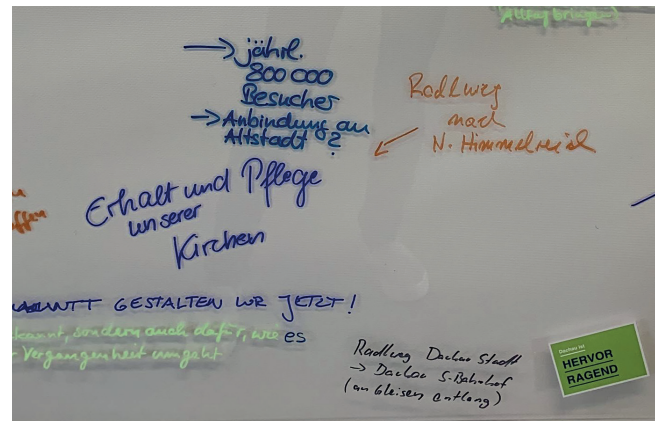 Alltag bringen
→ jährl.
800 000
Besucher
→ Anbindung an
Altstadt ?
Radlweg
nach
N. Himmelreich
Erhalt und Pflege
unserer
Kirchen
GESTALTEN WIR JETZT!
kannt, sondern auch dafür, wie es
Vergangenheit umgeht
Radlweg Dachau Stadt
→ Dachau S-Bahnhof
(an Gleisen entlang)
Dachau ist
HERVOR
RAGEND